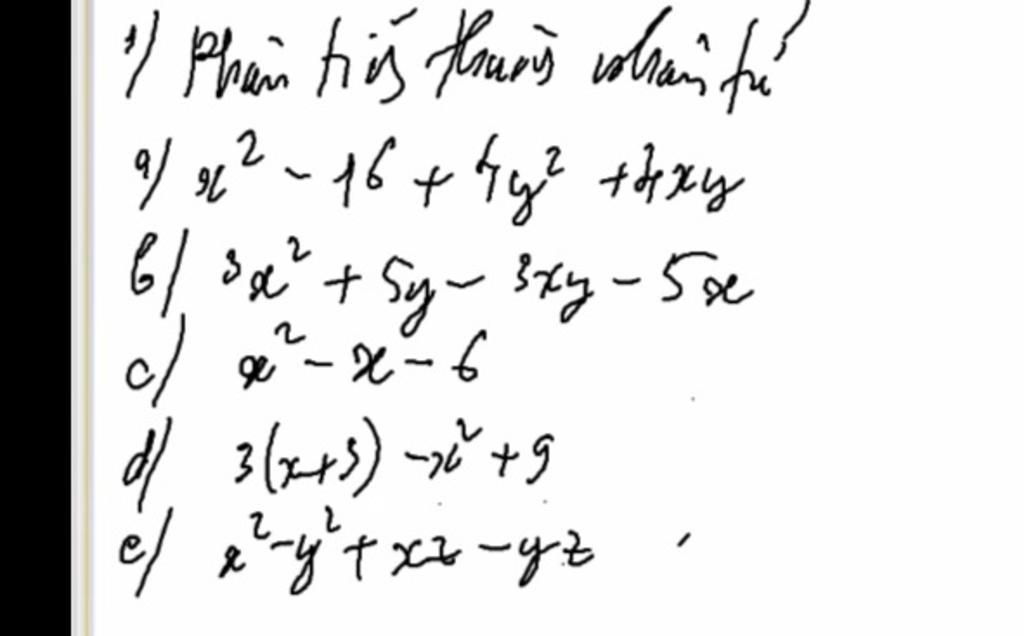 1/ Phân tích thành nhân tử
a/ x² - 16 + 4y² + 4xy
b/ 3x² + 5y - 3xy - 5x
c/ x² - x - 6
d/ 3(x+3) - x² + 9
e/ x² - y² + xz - yz